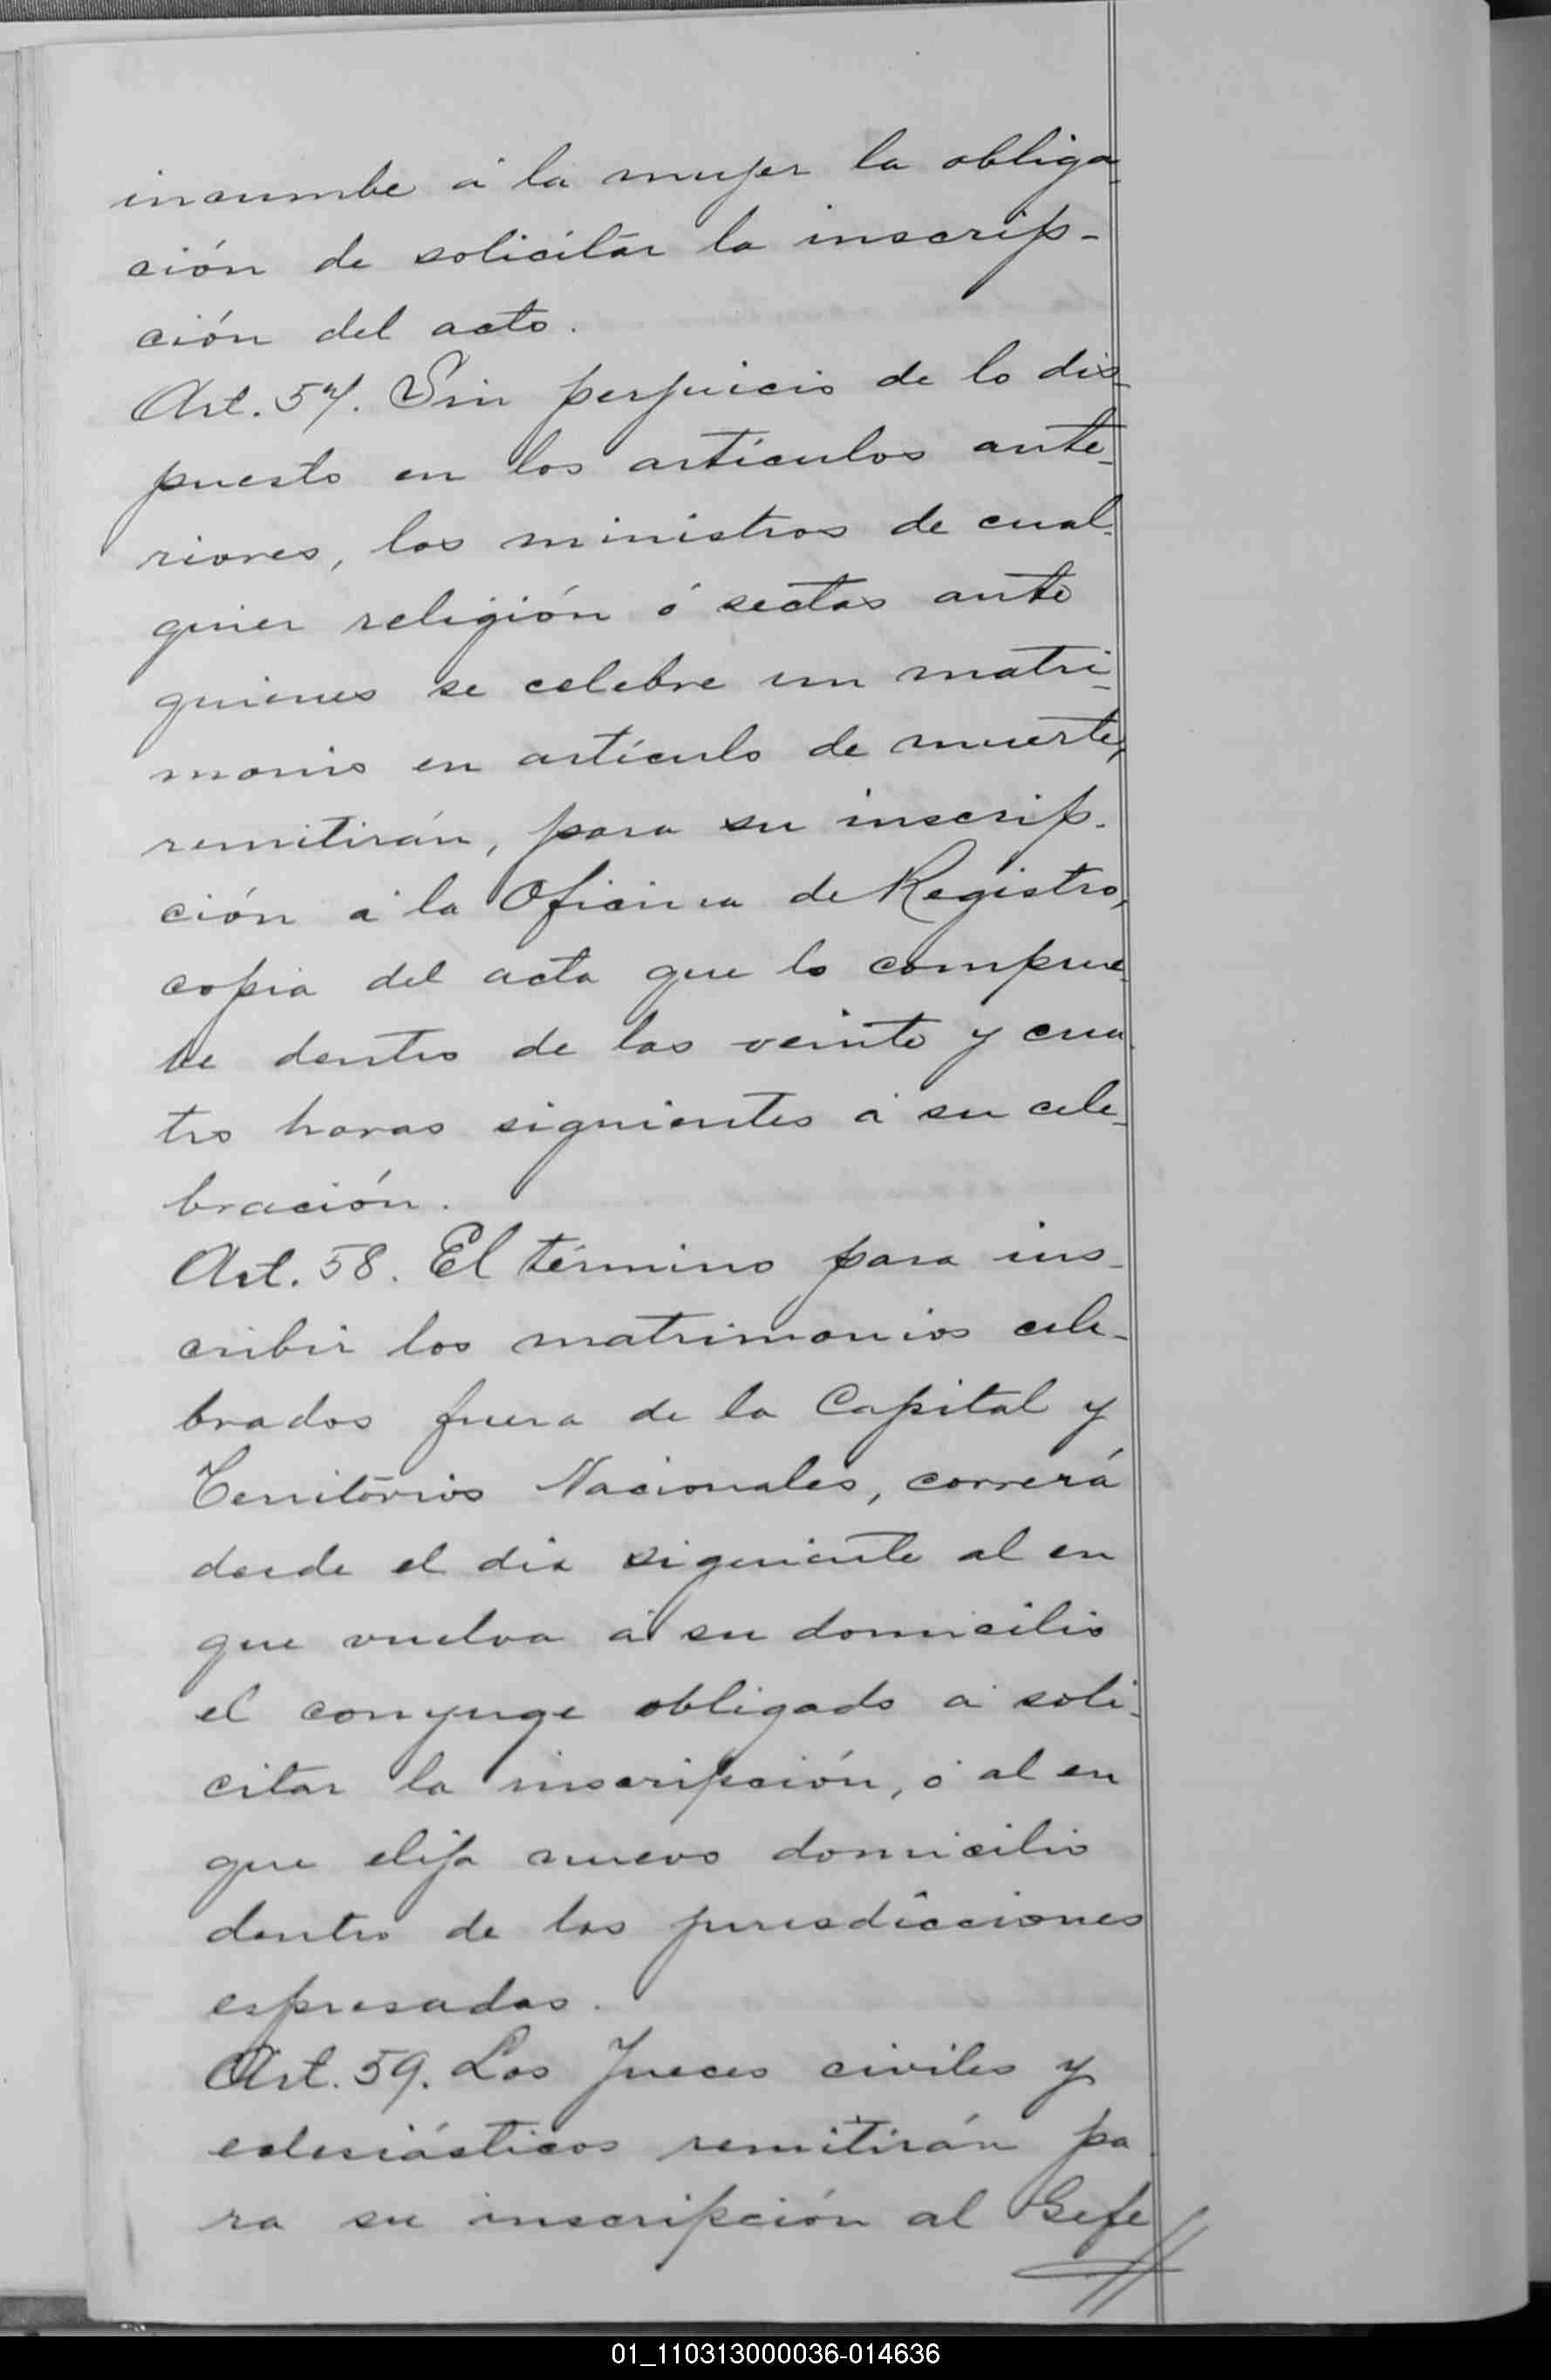 incumbe á la mujer la obliga-
ción de solicitar la inscrip-
ción del acto.
Art. 57. Sin perjuicio de lo dis-
puesto en los artículos ante-
riores, los ministros de cual-
quier religión ó sectas ante
quienes se celebre un matri-
monio en artículo de muerte,
remitirán, para su inscrip-
ción á la Oficina de Registro,
copia del acta que lo comprue-
be dentro de las veinte y cua-
tro horas siguientes á su cele-
bración.
Art. 58. El término para ins-
cribir los matrimonios cele-
brados fuera de la Capital y
Territorios Nacionales, correrá
desde el dia siguiente al en
que vuelva á su domicilio
el conyuge obligado á soli-
citar la inscripción, ó al en
que elija nuevo domicilio
dentro de las jurisdicciones
espresadas.
Art. 59. Los Jueces civiles y
eclesiásticos remitirán pa-
ra su inscripción al Gefe
01_110313000036-014636